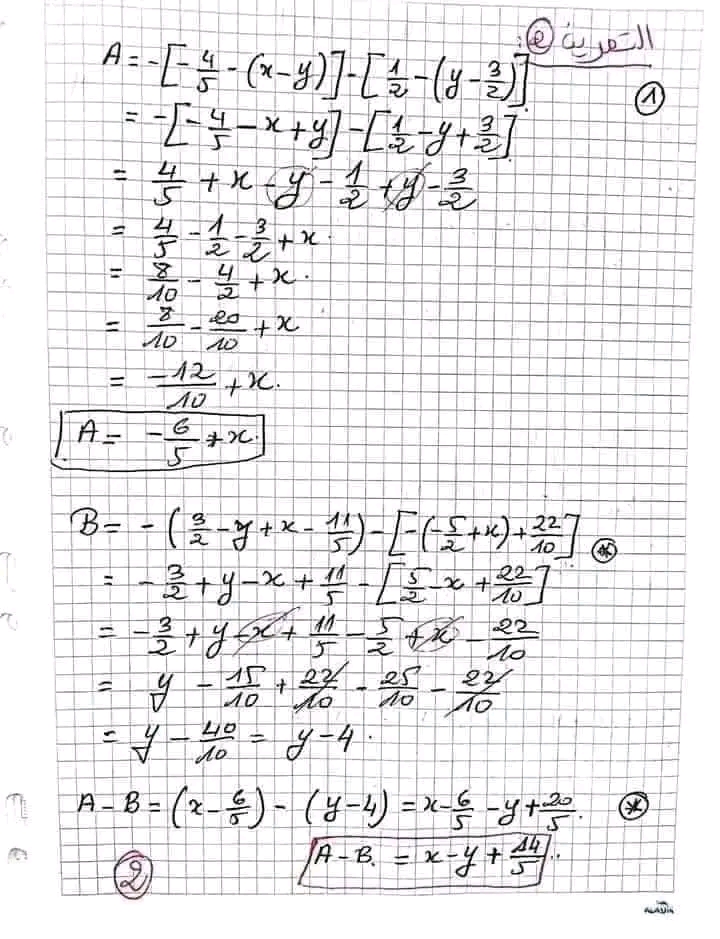 التمرين 2:
1
A = -[-4/5 - (x-y)] - [1/2 - (y - 3/2)]
= -[-4/5 - x + y] - [1/2 - y + 3/2]
= 4/5 + x - y - 1/2 + y - 3/2
= 4/5 - 1/2 - 3/2 + x.
= 8/10 - 4/2 + x.
= 8/10 - 20/10 + x
= -12/10 + x.
A = -6/5 + x.
B = -(3/2 - y + x - 11/5) - [-(-5/2 + x) + 22/10] *
= -3/2 + y - x + 11/5 - [5/2 - x + 22/10]
= -3/2 + y - x + 11/5 - 5/2 + x - 22/10
= y - 15/10 + 22/10 - 25/10 - 22/10
= y - 40/10 = y - 4.
A - B = (x - 6/5) - (y - 4) = x - 6/5 - y + 20/5. *
A - B. = x - y + 14/5..
2